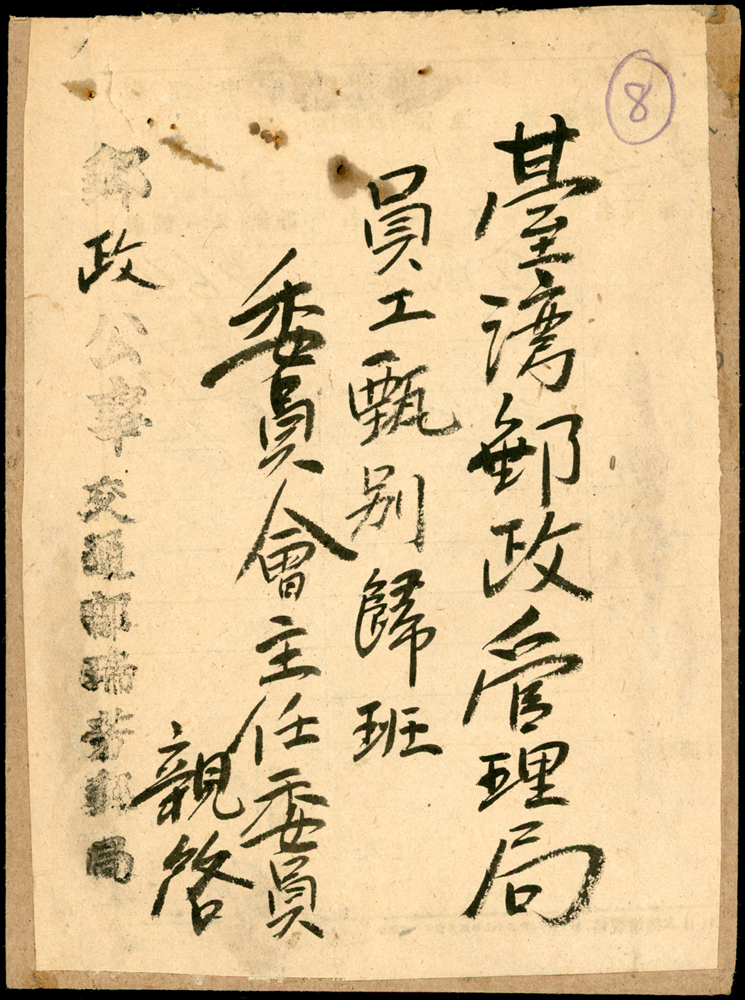 8
臺灣郵政管理局
員工甄別歸班
委員會主任委員
親啓
郵政公事交通部瑞芳郵局